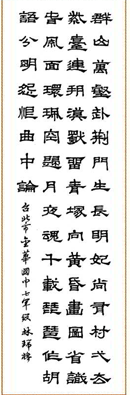 群山萬壑赴荊門生長明妃尚有村弌去
紫臺連朔漠獨留青塚向黃昏畫圖省識
春風面環珮空歸月夜魂千載琵琶作胡
語分明怨恨曲中論 台北市金華國中七年級 林